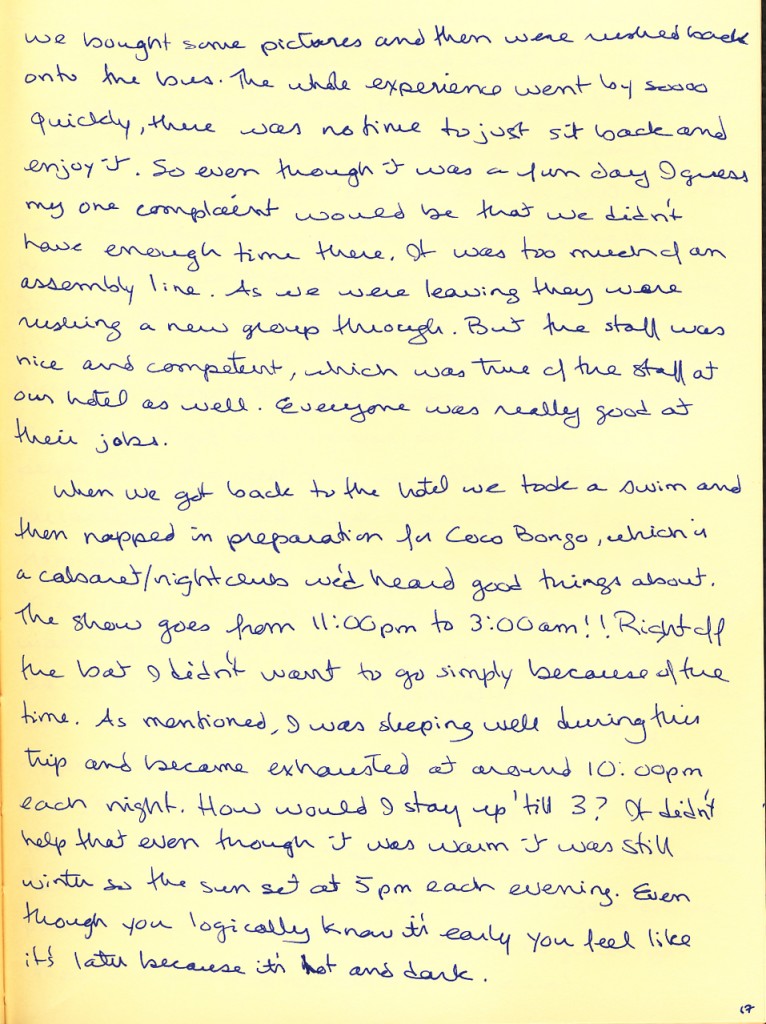 we bought some pictures and then were rushed back
onto the bus. The whole experience went by soooo
quickly, there was no time to just sit back and
enjoy it. So even though it was a fun day I guess
my one complaint would be that we didn't
have enough time there. It was too much of an
assembly line. As we were leaving they were
rushing a new group through. But the staff was
nice and competent, which was true of the staff at
our hotel as well. Everyone was really good at
their jobs.
When we got back to the hotel we took a swim and
then napped in preparation for Coco Bongo, which is
a cabaret/nightclub we'd heard good things about.
The show goes from 11:00pm to 3:00am!! Right off
the bat I didn't want to go simply because of the
time. As mentioned, I was sleeping well during this
trip and became exhausted at around 10:00pm
each night. How would I stay up 'till 3? It didn't
help that even though it was warm it was still
winter so the sun set at 5pm each evening. Even
though you logically know it's early you feel like
it's later because it's hot and dark.
17